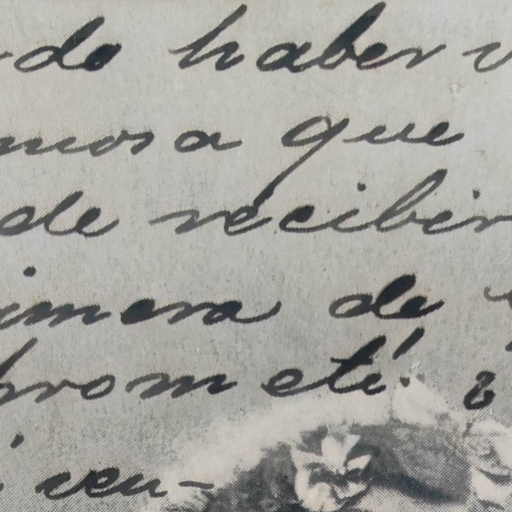 do haber
mosa que
de recibir
imera de
prometé!
ven-